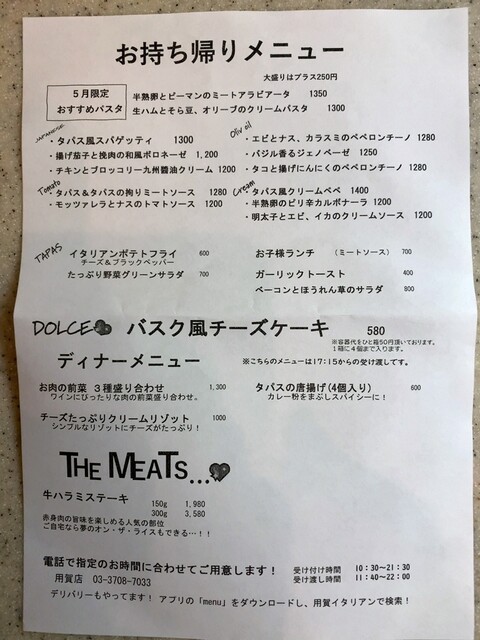 お持ち帰りメニュー
大盛りはプラス250円
５月限定
おすすめパスタ
半熟卵とピーマンのミートアラビアータ 1350
生ハムとそら豆、オリーブのクリームパスタ 1300
JAPANESE
・タパス風スパゲッティ 1300
・揚げ茄子と挽肉の和風ボロネーゼ 1,200
・チキンとブロッコリー九州醤油クリーム 1200
Tomato
・タパス＆タパスの拘りミートソース 1280
・モッツァレラとナスのトマトソース 1200
Olive oil
・エビとナス、カラスミのペペロンチーノ 1280
・バジル香るジェノベーゼ 1250
・タコと揚げにんにくのペペロンチーノ 1280
Cream
・タパス風クリームペペ 1400
・半熟卵のピリ辛カルボナーラ 1300
・明太子とエビ、イカのクリームソース 1200
TAPAS
イタリアンポテトフライ 600
チーズ＆ブラックペッパー
たっぷり野菜グリーンサラダ 700
お子様ランチ （ミートソース） 700
ガーリックトースト 400
ベーコンとほうれん草のサラダ 800
DOLCE バスク風チーズケーキ 580
※容器代をひと箱50円頂いております。
１箱に４個まで入ります。
ディナーメニュー ※こちらのメニューは17:15からの受け渡しです。
お肉の前菜 ３種盛り合わせ 1,300
ワインにぴったりな肉の前菜盛り合わせ。
チーズたっぷりクリームリゾット 1000
シンプルなリゾットにチーズがたっぷり！
タパスの唐揚げ(4個入り) 600
カレー粉をまぶしスパイシーに！
THE MEATS...
牛ハラミステーキ
150g 1,980
300g 3,580
赤身肉の旨味を楽しめる人気の部位
ご自宅なら夢のオン・ザ・ライスもできる…！！
電話で指定のお時間に合わせてご用意します！
用賀店 03-3708-7033
受け付け時間 10:30~21:30
受け渡し時間 11:40~22:00
デリバリーもやってます！ アプリの「menu」をダウンロードし、用賀イタリアンで検索！